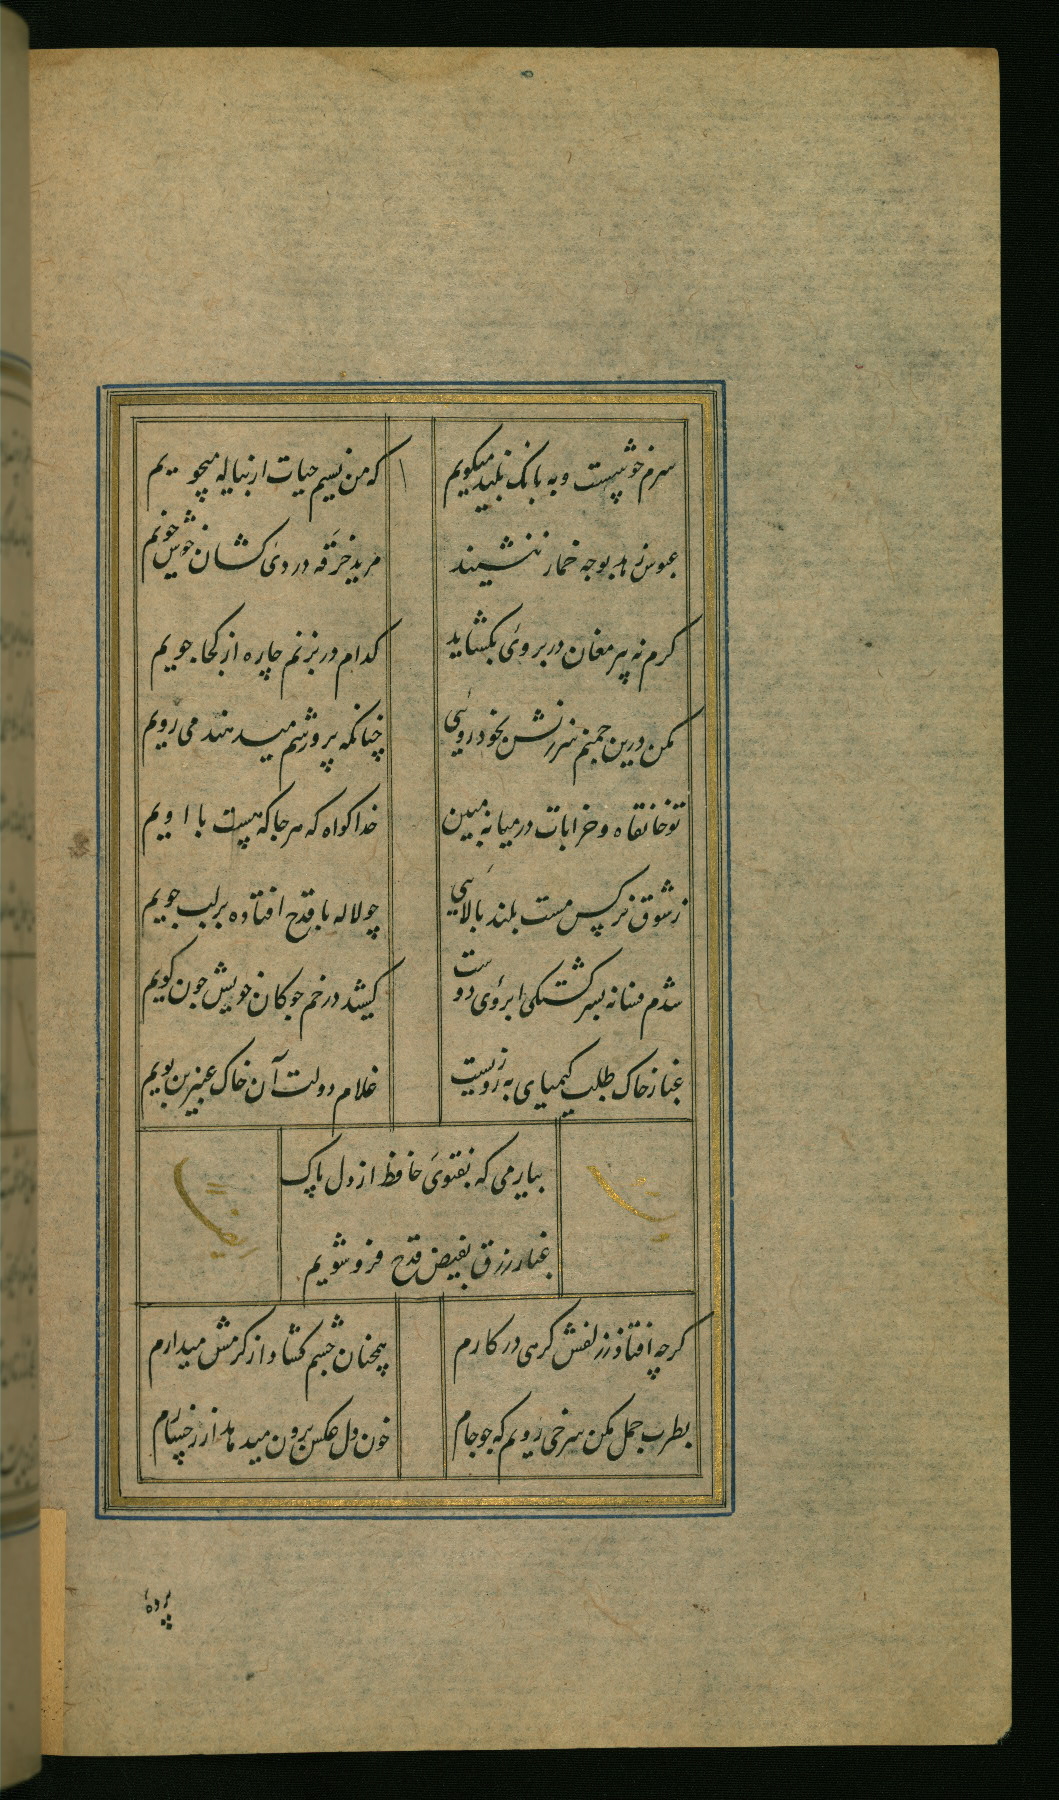 سرم خوشست و به بانک بلند میکویم
که من نسیم حیات از پیاله میجویم
عبوس زهد بوجه خمار ننشیند
مرید خرقه دردی کشان خوش خویم
کرم نه پیر مغان در بروی بکشاید
کدام در بزنم چاره از کجا جویم
مکن درین چمنم سرزنش بخودرویی
چنانکه پرورشم میدهند می رویم
تو خانقاه و خرابات در میانه مبین
خدا کواه که هر جا که هست با اویم
ز شوق نرکس مست بلند بالایی
چو لاله با قدح افتاده بر لب جویم
شدم فسانه بسرکشتکی ابروی دوست
کشید در خم چوکان خویش چون کویم
غبار خاک طلب کیمیای به روزیست
غلام دولت آن خاک عنبرین بویم
بیار می که بفتوی حافظ از دل پاک
غبار رزق بفیض قدح فرو شویم
کرچه افتاد ز زلفش کرهی در کارم
همچنان چشم کشاد از کرمش میدارم
بطرب حمل مکن سرخی رویم که چو جام
خون دل عکس برون میدهد از رخسارم
پرده